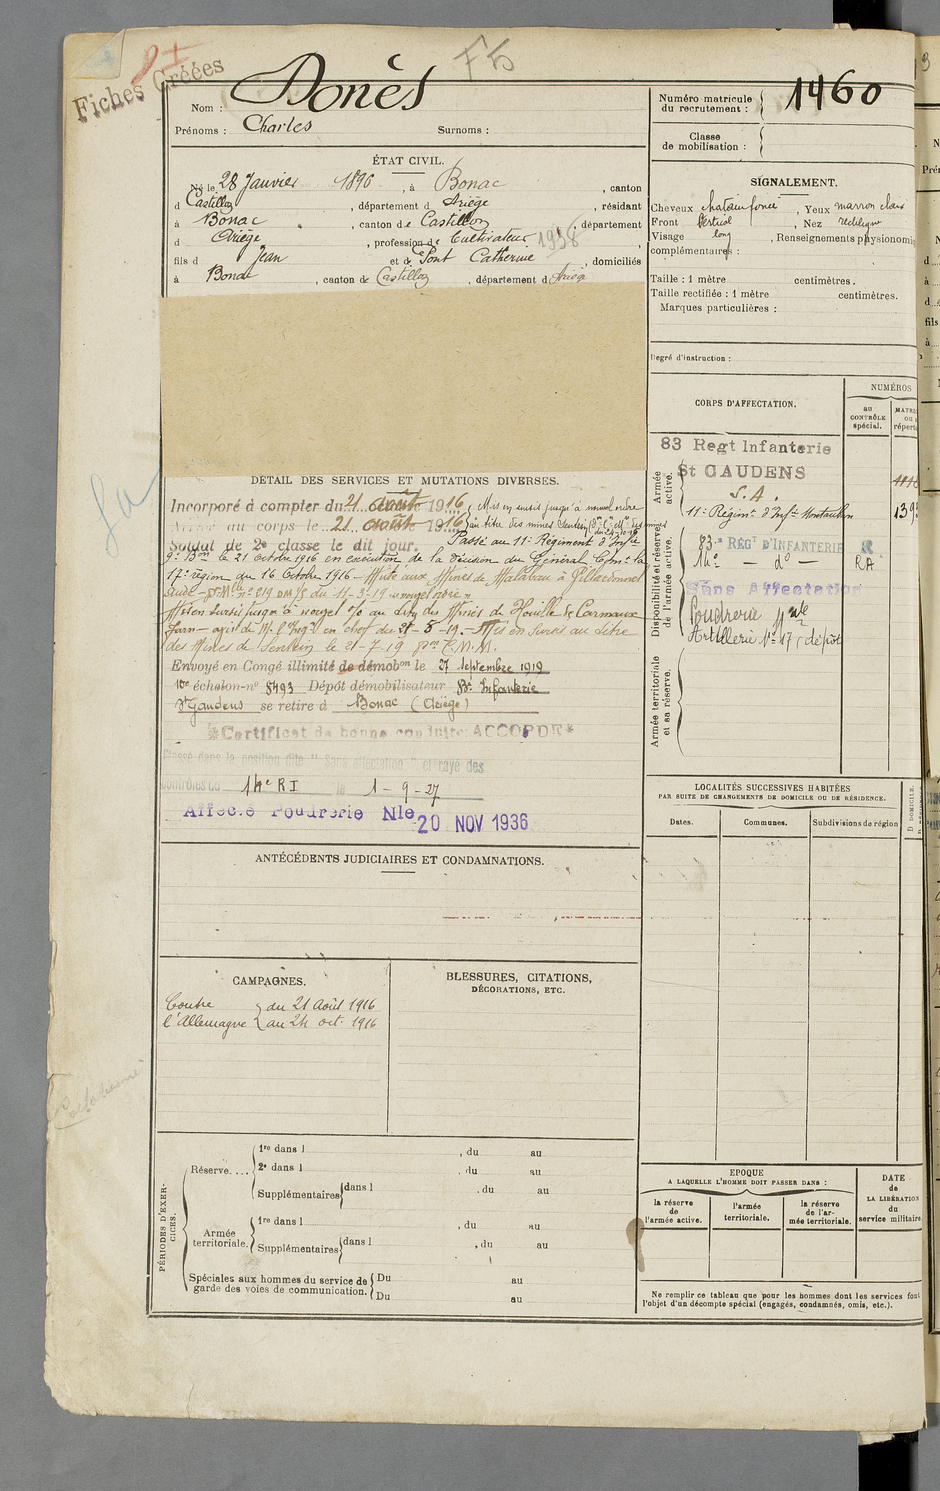 Fiches Créées
Nom : Donès
Prénoms : Charles Surnoms :
Numéro matricule du recrutement : 1460
Classe de mobilisation :
ÉTAT CIVIL.
Né le 28 Janvier 1896, à Bonac, canton
d Castillon, département d Ariège, résidant
à Bonac, canton de Castillon, département
d Ariège, profession de Cultivateur 1938
fils d Jean et de Pont Catherine, domiciliés
à Bonac, canton de Castillon, département d Ariège
SIGNALEMENT.
Cheveux chatain foncé, Yeux marron clair
Front Vertical, Nez rectiligne
Visage long, Renseignements physionomi
complémentaires :
Taille : 1 mètre centimètres.
Taille rectifiée : 1 mètre centimètres.
Marques particulières :
Degré d'instruction :
CORPS D'AFFECTATION.
NUMÉROS
au CONTRÔLE spécial.
MATRI
OU
réperto
Armée active.
83 Regt Infanterie
St GAUDENS
S.A.
11e Régimt d'Infie Montauban
139
Disponibilité et réserve de l'armée active.
83e REGt D'INFANTERIE
14e — do — RA
Sans Affectation
Poudrerie Nale
Artillerie No 17 (dépôt
Armée territoriale et sa réserve.
DÉTAIL DES SERVICES ET MUTATIONS DIVERSES.
Incorporé à compter du 21 août 1916
Arrivé au corps le 21 août 1916
Soldat de 2e classe le dit jour.
Mis en sursis jusqu'à nouvel ordre
au titre des mines
Passé au 11e Régiment d'Infie
le 21 octobre 1916 en exécution de la décision du Général Comt la
17e région du 16 Octobre 1916 - Muté aux Mines de Malabau à
Aude
Mis en Sursis jusqu'à nouvel o/e au titre des Mines de Houille de Carmaux
Tarn - en chef du 21-8-19. - Mis en sursis au titre
des Mines de Sentein le 21-7-19
Envoyé en Congé illimité de démobon le 27 Septembre 1919
échelon no 8493 Dépôt démobilisateur 83e Infanterie
St Gaudens se retire à Bonac (Ariège)
*Certificat de bonne conduite: ACCORDÉ*
Classé dans la position dite "Sans affectation" et rayé des
contrôles du 14e RI le 1-9-27
Affecté Poudrerie Nle 20 NOV 1936
LOCALITÉS SUCCESSIVES HABITÉES
PAR SUITE DE CHANGEMENTS DE DOMICILE OU DE RÉSIDENCE.
Dates. Communes. Subdivisions de région
ANTÉCÉDENTS JUDICIAIRES ET CONDAMNATIONS.
CAMPAGNES.
Contre l'Allemagne
du 21 Août 1916
au 24 oct. 1916
BLESSURES, CITATIONS,
DÉCORATIONS, ETC.
PÉRIODES D'EXERCICES.
Réserve....
1re dans l , du au
2e dans l , du au
Supplémentaires dans l , du au
Armée territoriale.
1re dans l , du au
Supplémentaires dans l , du au
Spéciales aux hommes du service de garde des voies de communication.
Du au
Du au
EPOQUE
A LAQUELLE L'HOMME DOIT PASSER DANS :
la réserve de l'armée active.
l'armée territoriale.
la réserve de l'armée territoriale.
DATE
de
LA LIBÉRATION
du
service militaire.
Ne remplir ce tableau que pour les hommes dont les services font
l'objet d'un décompte spécial (engagés, condamnés, omis, etc.).